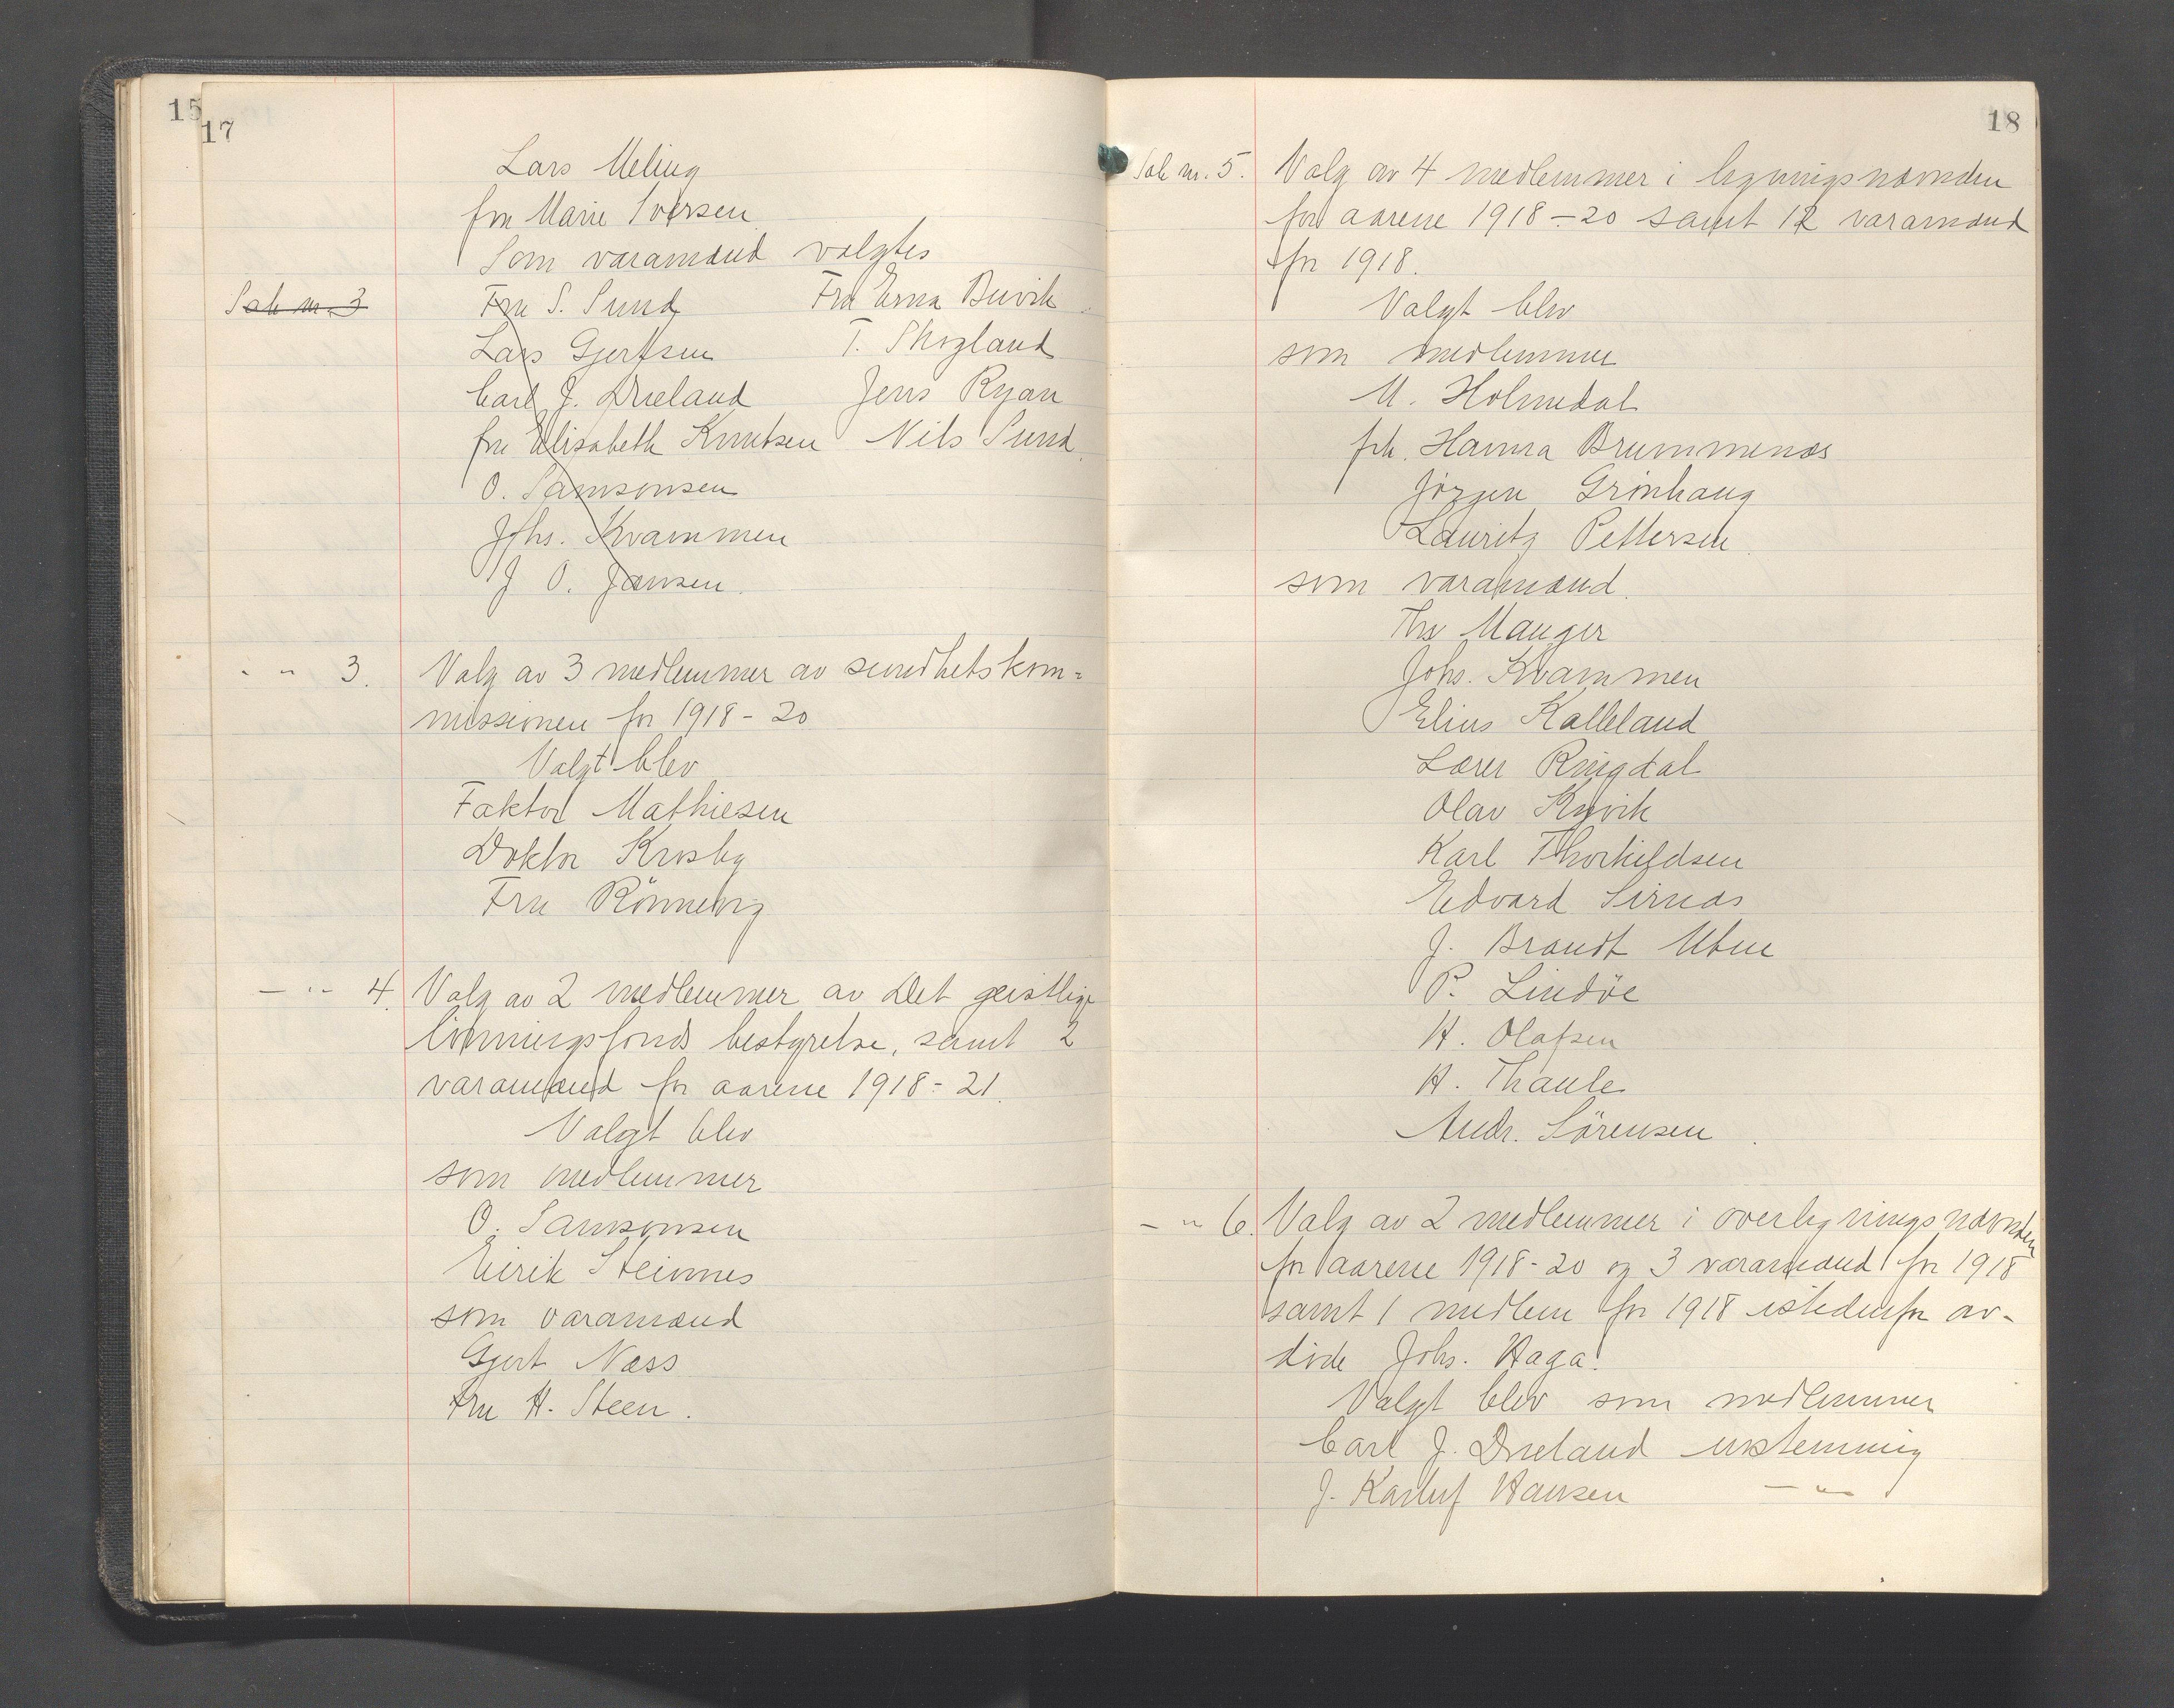 15
17
Lars Meling
fru Marie Iversen
Som varamænd valgtes
Sak nr. 3
Fru S. Sund
Lars Gjertsen
Carl J. Dreland
fru Elisabeth Knutsen
O. Samsonsen
Johs. Kvammen
J. O. Jansen.
Fru Erna Buvik
T. Skogland
Jens Ryan
Nils Sund.
- " - 3. Valg av 3 medlemmer av sundhetskom-
missionen for 1918-20
Valgt blev
Faktor Mathiesen
Doktor Krosby
Fru Rönnevig
- " - 4. Valg av 2 medlemmer av Det geistlige
lönningsfonds bestyrelse, samt 2
varamænd for aarene 1918-21.
Valgt blev
som medlemmer
O. Samsonsen
Eirik Steinnes
som varamænd
Gjert Næss
Fru H. Steen.
18
Sak nr. 5. Valg av 4 medlemmer i ligningsnævnden
for aarene 1918-20 samt 12 varamænd
for 1918.
Valgt blev
som medlemmer
M. Holmedal
frk. Hanna Brummenæs
Jörgen Grönhaug
Lauritz Pettersen
som varamænd.
Ths Manger
Johs. Kvammen
Elius Kalleland
Lærer Ringdal
Olav Kyvik
Karl Thorkildsen
Edvard Sirnæs
J. Brandt Utne
P. Lindöe
H. Olafsen
H. Thaule
Andr. Sörensen.
- " - 6. Valg av 2 medlemmer i overligningsnævnden
for aarene 1918-20 og 3 varamænd for 1918
samt 1 medlem for 1918 istedenfor av-
döde Johs. Haga.
Valgt blev som medlemmer
Carl J. Dreland enstemmig
J. Karluf Hansen - " -